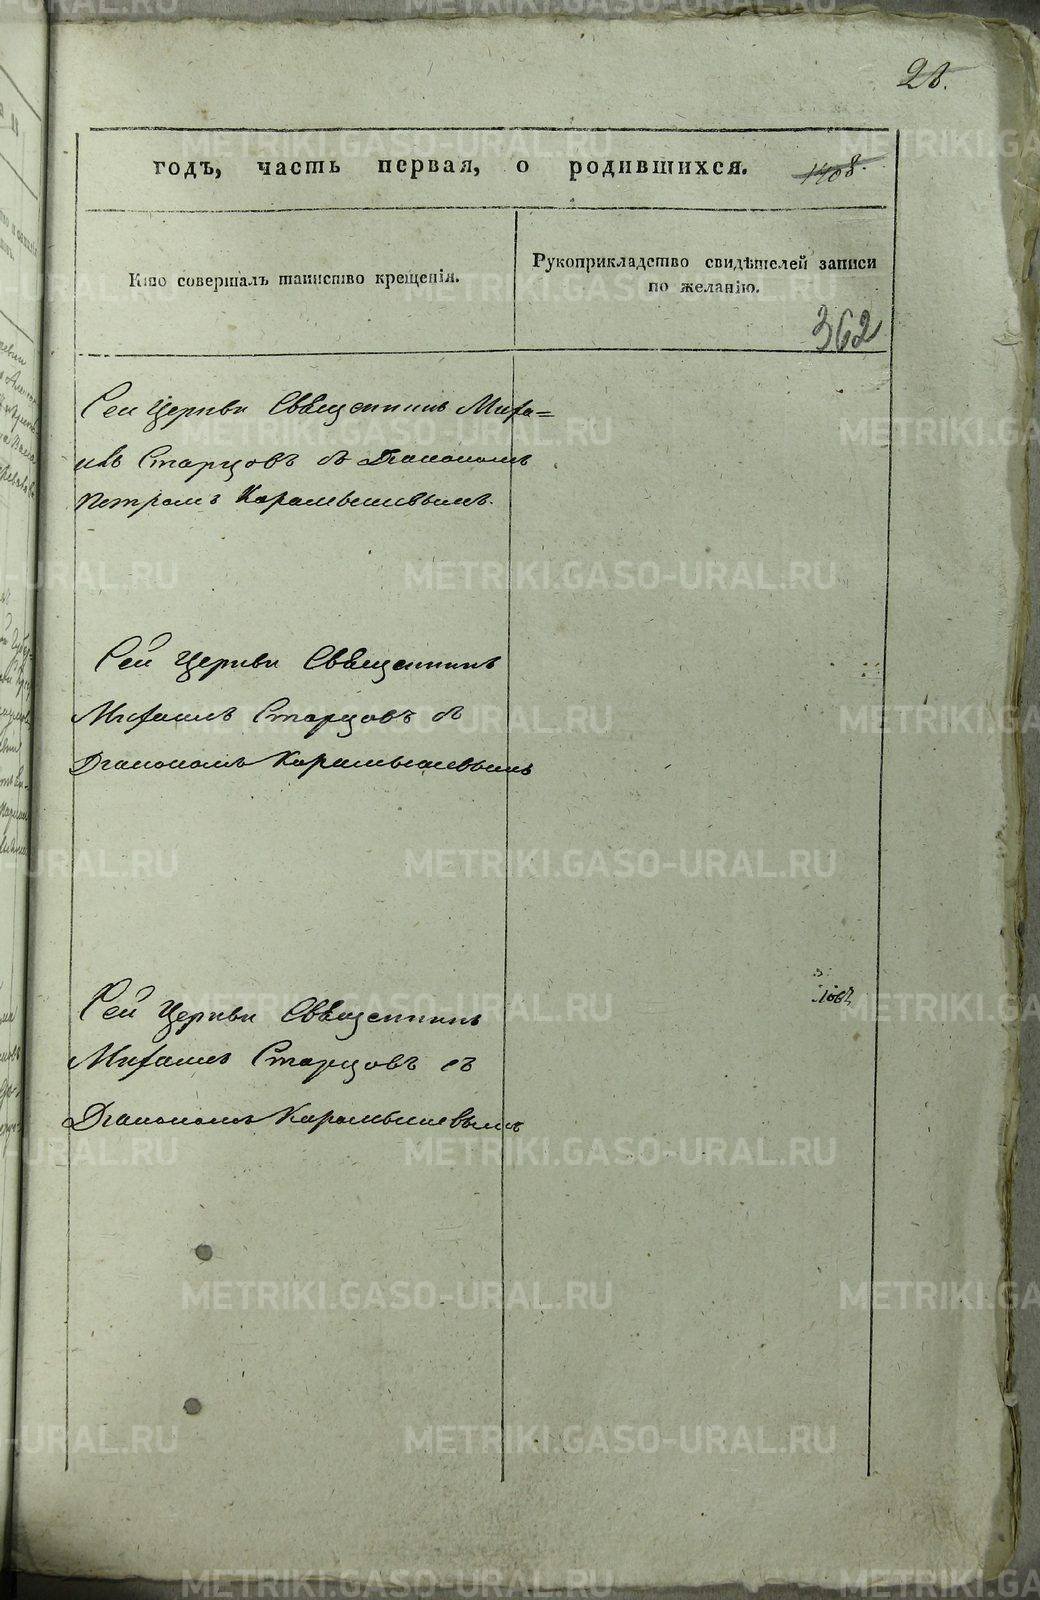 28.
годъ, часть первая, о родившихся. 1408.
Кто совершалъ таинство крещенія.
Рукоприкладство свидѣтелей записи
по желанію.
362
Сей Церкви Священникъ Миха=
илъ Старцовъ съ Діакономъ
Петромъ Карамышевымъ.
Сей Церкви Священникъ
Михаилъ Старцовъ съ
Діакономъ Карамышевымъ
Сей Церкви Священникъ
Михаилъ Старцовъ съ
Діакономъ Карамышевымъ
METRIKI.GASO-URAL.RU